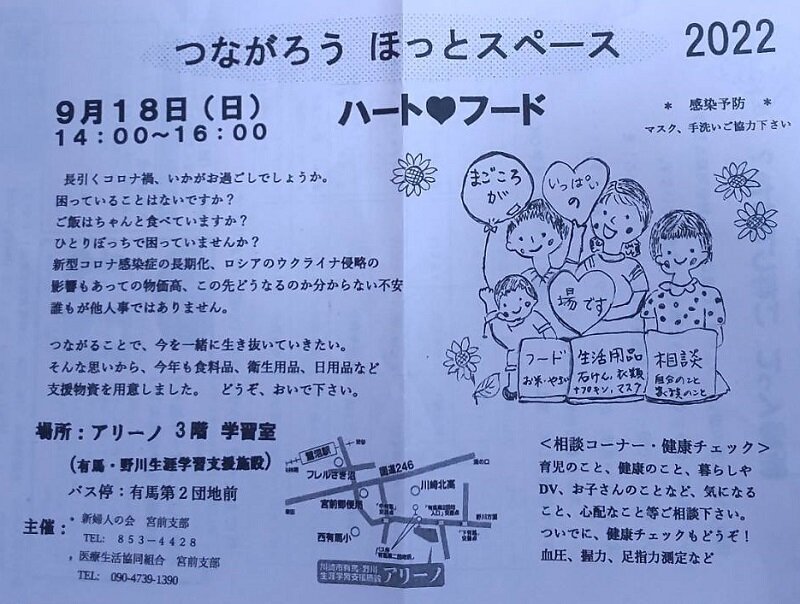 つながろう ほっとスペース 2022
9月18日（日）
14:00～16:00
ハート♥フード
＊ 感染予防 ＊
マスク、手洗いご協力下さい
長引くコロナ禍、いかがお過ごしでしょうか。
困っていることはないですか？
ご飯はちゃんと食べていますか？
ひとりぼっちで困っていませんか？
新型コロナ感染症の長期化、ロシアのウクライナ侵略の
影響もあっての物価高、この先どうなるのか分からない不安
誰もが他人事ではありません。
つながることで、今を一緒に生き抜いていきたい。
そんな思いから、今年も食料品、衛生用品、日用品など
支援物資を用意しました。 どうぞ、おいで下さい。
まごころ
が
いっぱい
の
場です
フード
お米・やさい
生活用品
石けん、衣類
ナプキン、マスク
相談
自分のこと
家族のこと
場所：アリーノ 3階 学習室
（有馬・野川生涯学習支援施設）
バス停：有馬第2団地前
主催：
・新婦人の会 宮前支部
TEL: 853-4428
・医療生活協同組合 宮前支部
TEL: 090-4739-1390
鷺沼駅
フレルさぎ沼
国道246
溝の口
川崎北高
宮前郵便局
西有馬小
野川方面
川崎市有馬・野川
生涯学習支援施設 アリーノ
＜相談コーナー・健康チェック＞
育児のこと、健康のこと、暮らしや
DV、お子さんのことなど、気になる
こと、心配なこと等ご相談下さい。
ついでに、健康チェックもどうぞ！
血圧、握力、足指力測定など